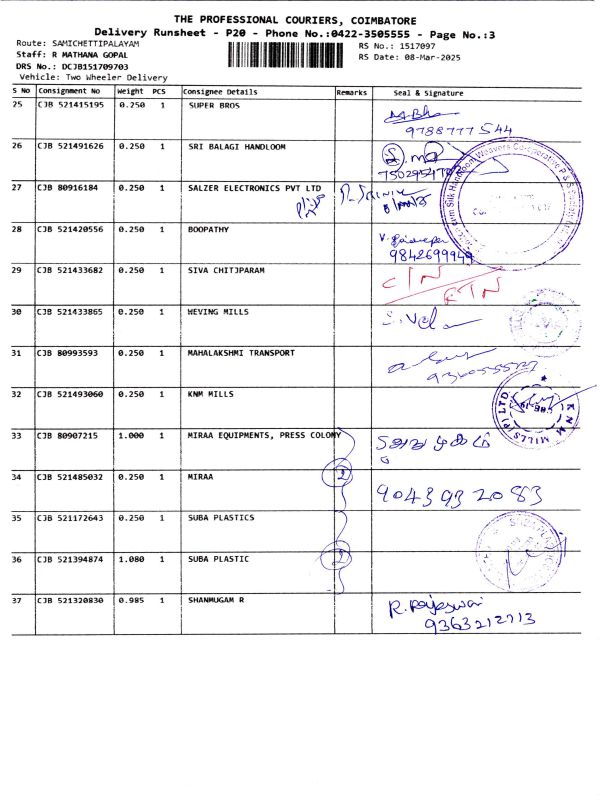 THE PROFESSIONAL COURIERS, COIMBATORE
Delivery Runsheet - P20 - Phone No.:0422-3505555 - Page No.:3
Route: SAMICHETTIPALAYAM RS No.: 1517097
Staff: R MATHANA GOPAL RS Date: 08-Mar-2025
DRS No.: DCJB151709703
Vehicle: Two Wheeler Delivery
S No Consignment No Weight PCS Consignee Details Remarks Seal & Signature
25 CJB 521415195 0.250 1 SUPER BROS
9788777544
26 CJB 521491626 0.250 1 SRI BALAGI HANDLOOM
27 CJB 80916184 0.250 1 SALZER ELECTRONICS PVT LTD
28 CJB 521420556 0.250 1 BOOPATHY
9842699949
29 CJB 521433682 0.250 1 SIVA CHITJPARAM
RTN
30 CJB 521433865 0.250 1 WEVING MILLS
31 CJB 80993593 0.250 1 MAHALAKSHMI TRANSPORT
32 CJB 521493060 0.250 1 KNM MILLS
K N M MILLS (P) LTD
33 CJB 80907215 1.000 1 MIRAA EQUIPMENTS, PRESS COLONY
34 CJB 521485032 0.250 1 MIRAA 2
9043932083
35 CJB 521172643 0.250 1 SUBA PLASTICS
36 CJB 521394874 1.080 1 SUBA PLASTIC 2
37 CJB 521320830 0.985 1 SHANMUGAM R R. Rajeswari
9363212713